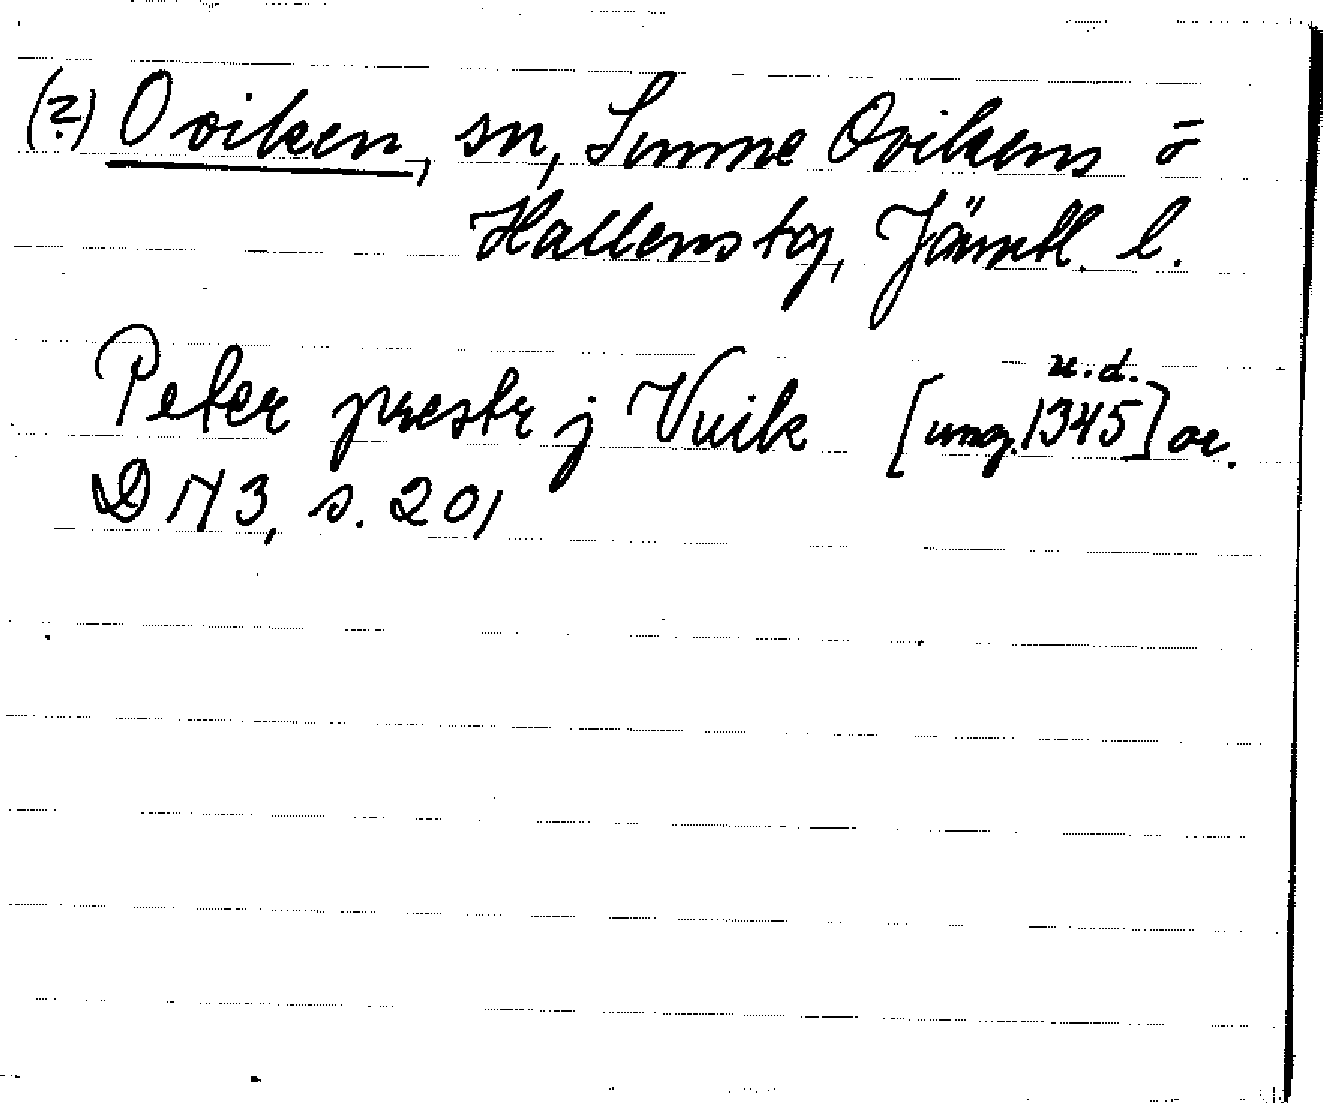 (?) Oviken, sn, Sunne Ovikens o
Hallens tg, Jämtl. l.
Peter prestr j Vuik [omg. 1345] or.
u.d.
DN 3, s. 201